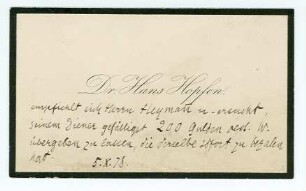 Dr. Hans Hopfen.
empfiehlt sich Herrn Heymann u. ersucht
seinem Diener gefälligst 200 Gulden oest. W.
übergeben zu lassen, die derselbe sofort zu bezahlen
hat 5. X. 78.